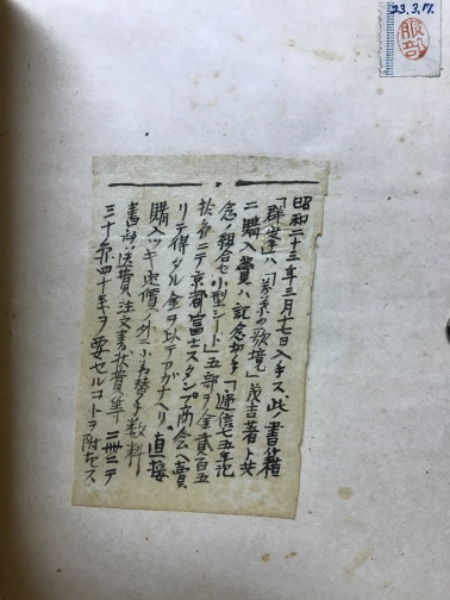 23.3.17.
服部
昭和二十三年三月十七日入手ス、此ノ書籍
「群峯」ハ「茂吉の歌境」茂吉著ト共
ニ購入費ハ記念切手「逓信七五年記
念ノ組合セ小型シート」五部ヲ金貳百五
拾名ニテ京都冨士スタンプ商会ヘ賣
リテ得タル金ヲ以テアガナヘリ。直接
購入ツキ定價ノ外ニ小為替手数料
書籍送費注文書状費等二冊ニテ
三十余四十年ヲ要セルコトヲ附セス